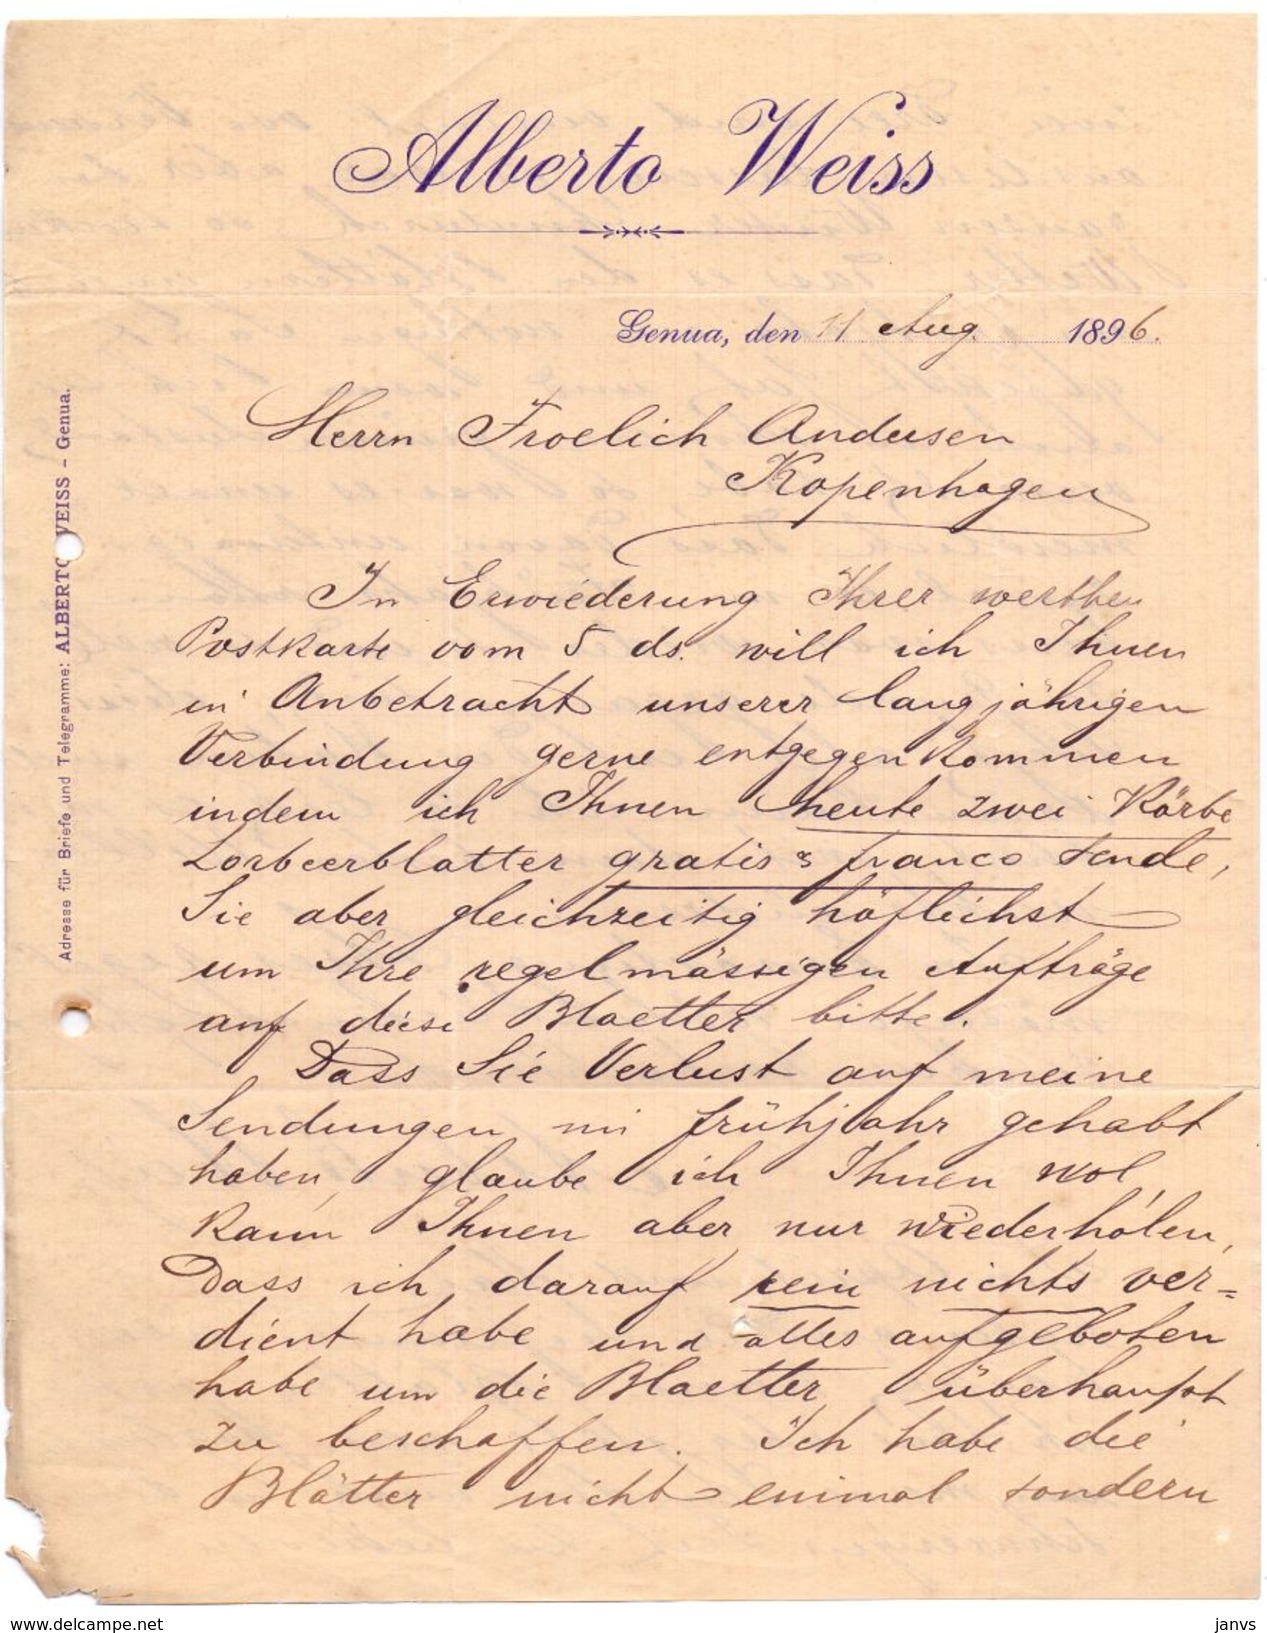 Alberto Weiss
Genua, den 11 Aug. 1896.
Adresse für Briefe und Telegramme: ALBERTO WEISS - Genua.
Herrn Froelich Andersen
Kopenhagen
In Erwiederung Ihrer werthen
Postkarte vom 5 ds. will ich Ihnen
in Anbetracht unserer langjährigen
Verbindung gerne entgegenkommen
indem ich Ihnen heute zwei Körbe
Lorbeerblatter gratis & franco sende,
Sie aber gleichzeitig höflichst
um Ihre regelmässigen Aufträge
auf diese Blaetter bitte.
Dass Sie Verlust auf meine
Sendungen im frühjahr gehabt
haben, glaube ich Ihnen wol,
kann Ihnen aber nur wiederholen,
Dass ich darauf rein nichts ver=
dient habe und alles aufgeboten
habe um die Blaetter überhaupt
zu beschaffen. Ich habe die
Blätter nicht einmal sondern
www.delcampe.net
janvs